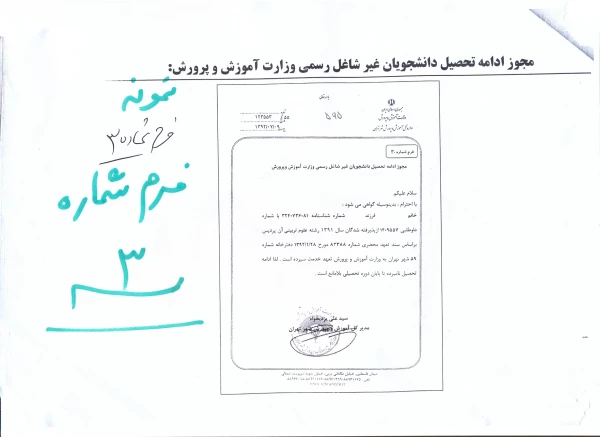 مجوز ادامه تحصیل دانشجویان غیر شاغل رسمی وزارت آموزش و پرورش:
نمونه
فرم شماره ۳
فرم شماره
۳
فرم شماره ۳۰
مجوز ادامه تحصیل دانشجویان غیر شاغل رسمی وزارت آموزش وپرورش
سلام علیکم
با احترام ، بدینوسیله گواهی می شود :
خانم فرزند شماره شناسنامه با شماره
داوطلبی ازپذیرفته شدگان سال ۱۳۹۱ رشته علوم تربیتی آن پردیس
براساس سند تعهد محضری شماره ۸۳۳۸۸ مورخ ۱۳۹۲/۱/۲۸ دفترخانه شماره
۵۹ شهر تهران به وزارت آموزش و پرورش تعهد خدمت سپرده است . لذا ادامه
تحصیل نامبرده تا پایان دوره تحصیلی بلامانع است .
سید علی یزدیخواه
مدیر کل آموزش و پرورش شهر تهران